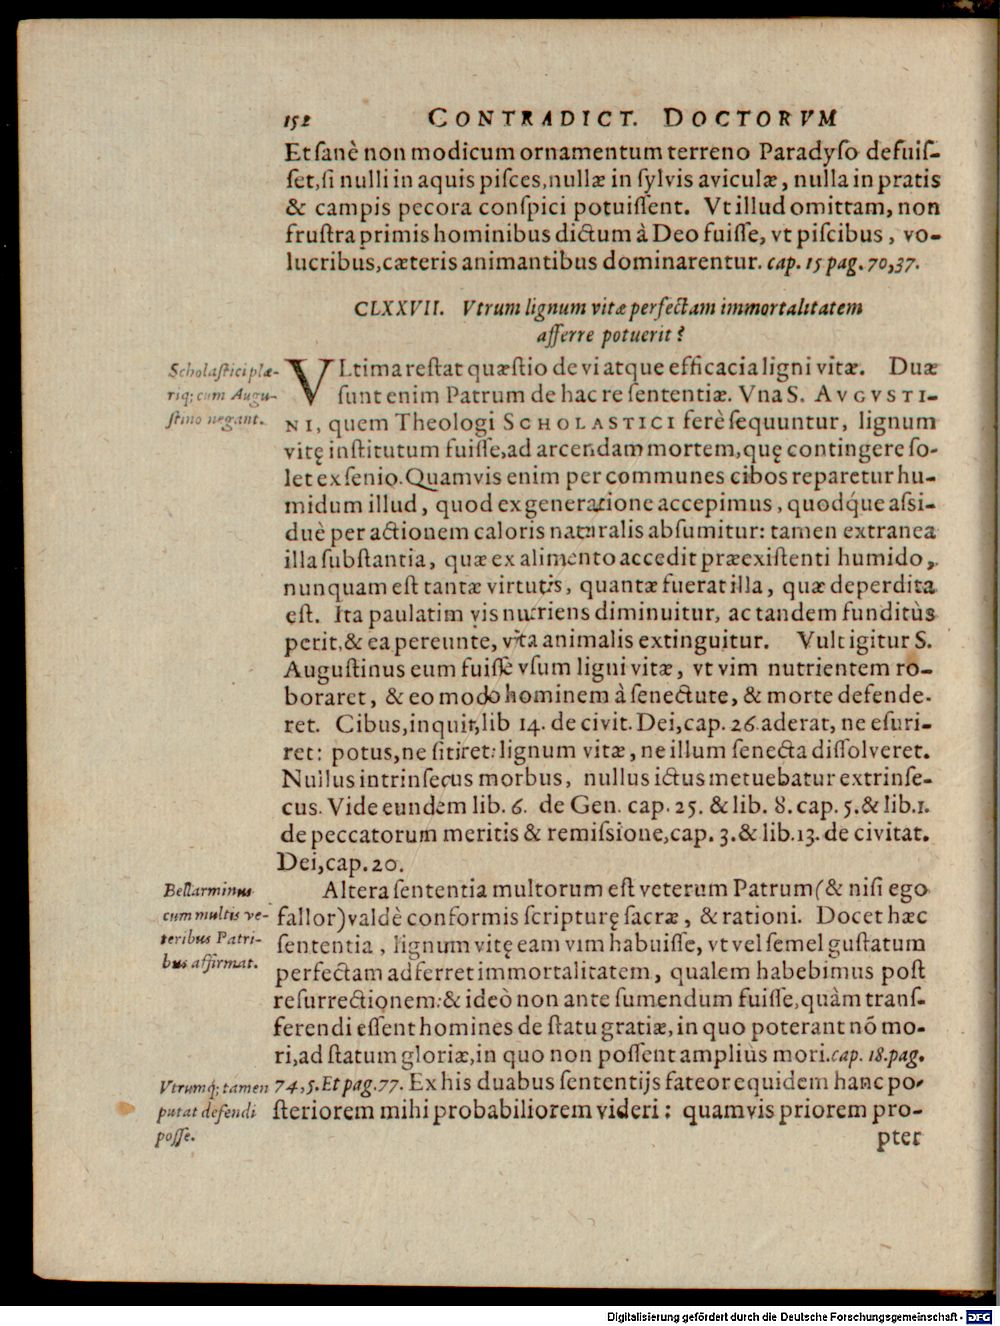 152 CONTRADICT. DOCTORVM
Et sanè non modicum ornamentum terreno Paradyso defuis-
set, si nulli in aquis pisces, nullæ in sylvis aviculæ, nulla in pratis
& campis pecora conspici potuissent. Vt illud omittam, non
frustra primis hominibus dictum à Deo fuisse, vt piscibus, vo-
lucribus, cæteris animantibus dominarentur. cap. 15 pag. 70, 37.
CLXXVII. Vtrum lignum vitæ perfectam immortalitatem
afferre potuerit?
Scholastici plæ-
riq; cum Augu-
stino negant.
VLtima restat quæstio de vi atque efficacia ligni vitæ. Duæ
sunt enim Patrum de hac re sententiæ. Vna S. AVGVSTI-
NI, quem Theologi SCHOLASTICI ferè sequuntur, lignum
vitę institutum fuisse, ad arcendam mortem, quę contingere so-
let ex senio. Quamvis enim per communes cibos reparetur hu-
midum illud, quod ex generatione accepimus, quodq́ue assi-
duè per actionem caloris naturalis absumitur: tamen extranea
illa substantia, quæ ex alimento accedit præexistenti humido,
nunquam est tantæ virtutis, quantæ fuerat illa, quæ deperdita
est. Ita paulatim vis nutriens diminuitur, ac tandem funditùs
perit, & ea pereunte, vita animalis extinguitur. Vult igitur S.
Augustinus eum fuisse vsum ligni vitæ, vt vim nutrientem ro-
boraret, & eo modo hominem à senectute, & morte defende-
ret. Cibus, inquit, lib 14. de civit. Dei, cap. 26. aderat, ne esuri-
ret: potus, ne sitiret: lignum vitæ, ne illum senecta dissolveret.
Nullus intrinsecus morbus, nullus ictus metuebatur extrinse-
cus. Vide eundem lib. 6. de Gen. cap. 25. & lib. 8. cap. 5. & lib. 1.
de peccatorum meritis & remissione, cap. 3. & lib. 13. de civitat.
Dei, cap. 20.
Bellarminus
cum multis ve-
teribus Patri-
bus affirmat.
Altera sententia multorum est veterum Patrum (& nisi ego
fallor) valdè conformis scripturę sacræ, & rationi. Docet hæc
sententia, lignum vitę eam vim habuisse, vt vel semel gustatum
perfectam adferret immortalitatem, qualem habebimus post
resurrectionem: & ideò non ante sumendum fuisse, quàm trans-
ferendi essent homines de statu gratiæ, in quo poterant nõ mo-
ri, ad statum gloriæ, in quo non possent ampliùs mori. cap. 18. pag.
74, 5. Et pag. 77. Ex his duabus sententijs fateor equidem hanc po-
steriorem mihi probabiliorem videri: quamvis priorem pro-
Vtrumq; tamen
putat defendi
posse.
pter
Digitalisierung gefördert durch die Deutsche Forschungsgemeinschaft - DFG